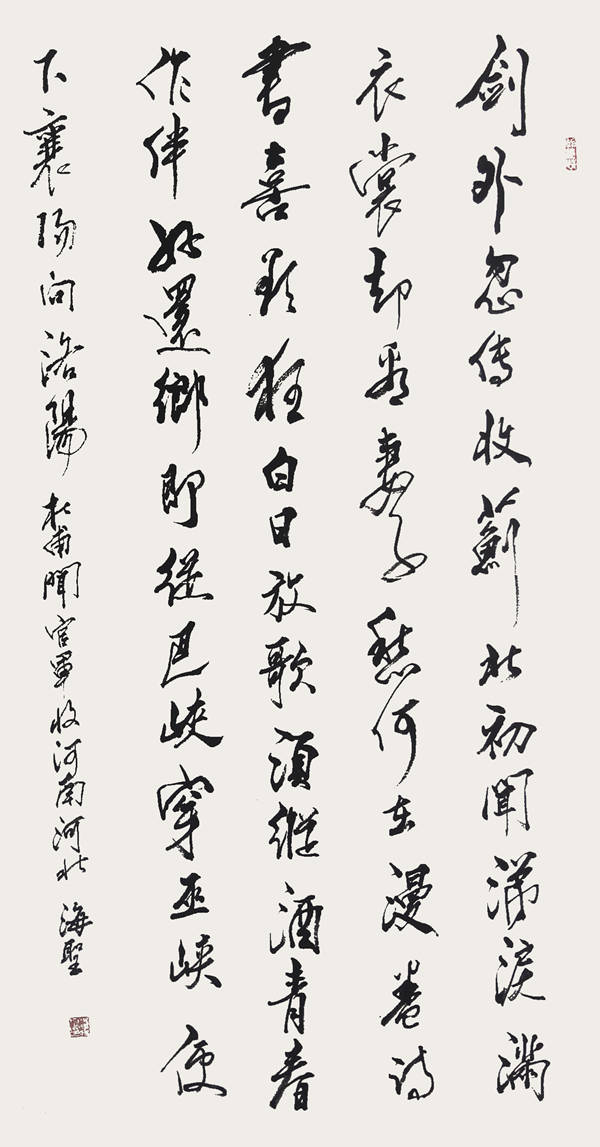 劍外忽傳收薊北初聞涕淚滿
衣裳却看妻子愁何在漫卷詩
書喜欲狂白日放歌須縱酒青春
作伴好還鄉即從巴峽穿巫峽便
下襄陽向洛陽 杜甫聞官軍收河南河北 海聖